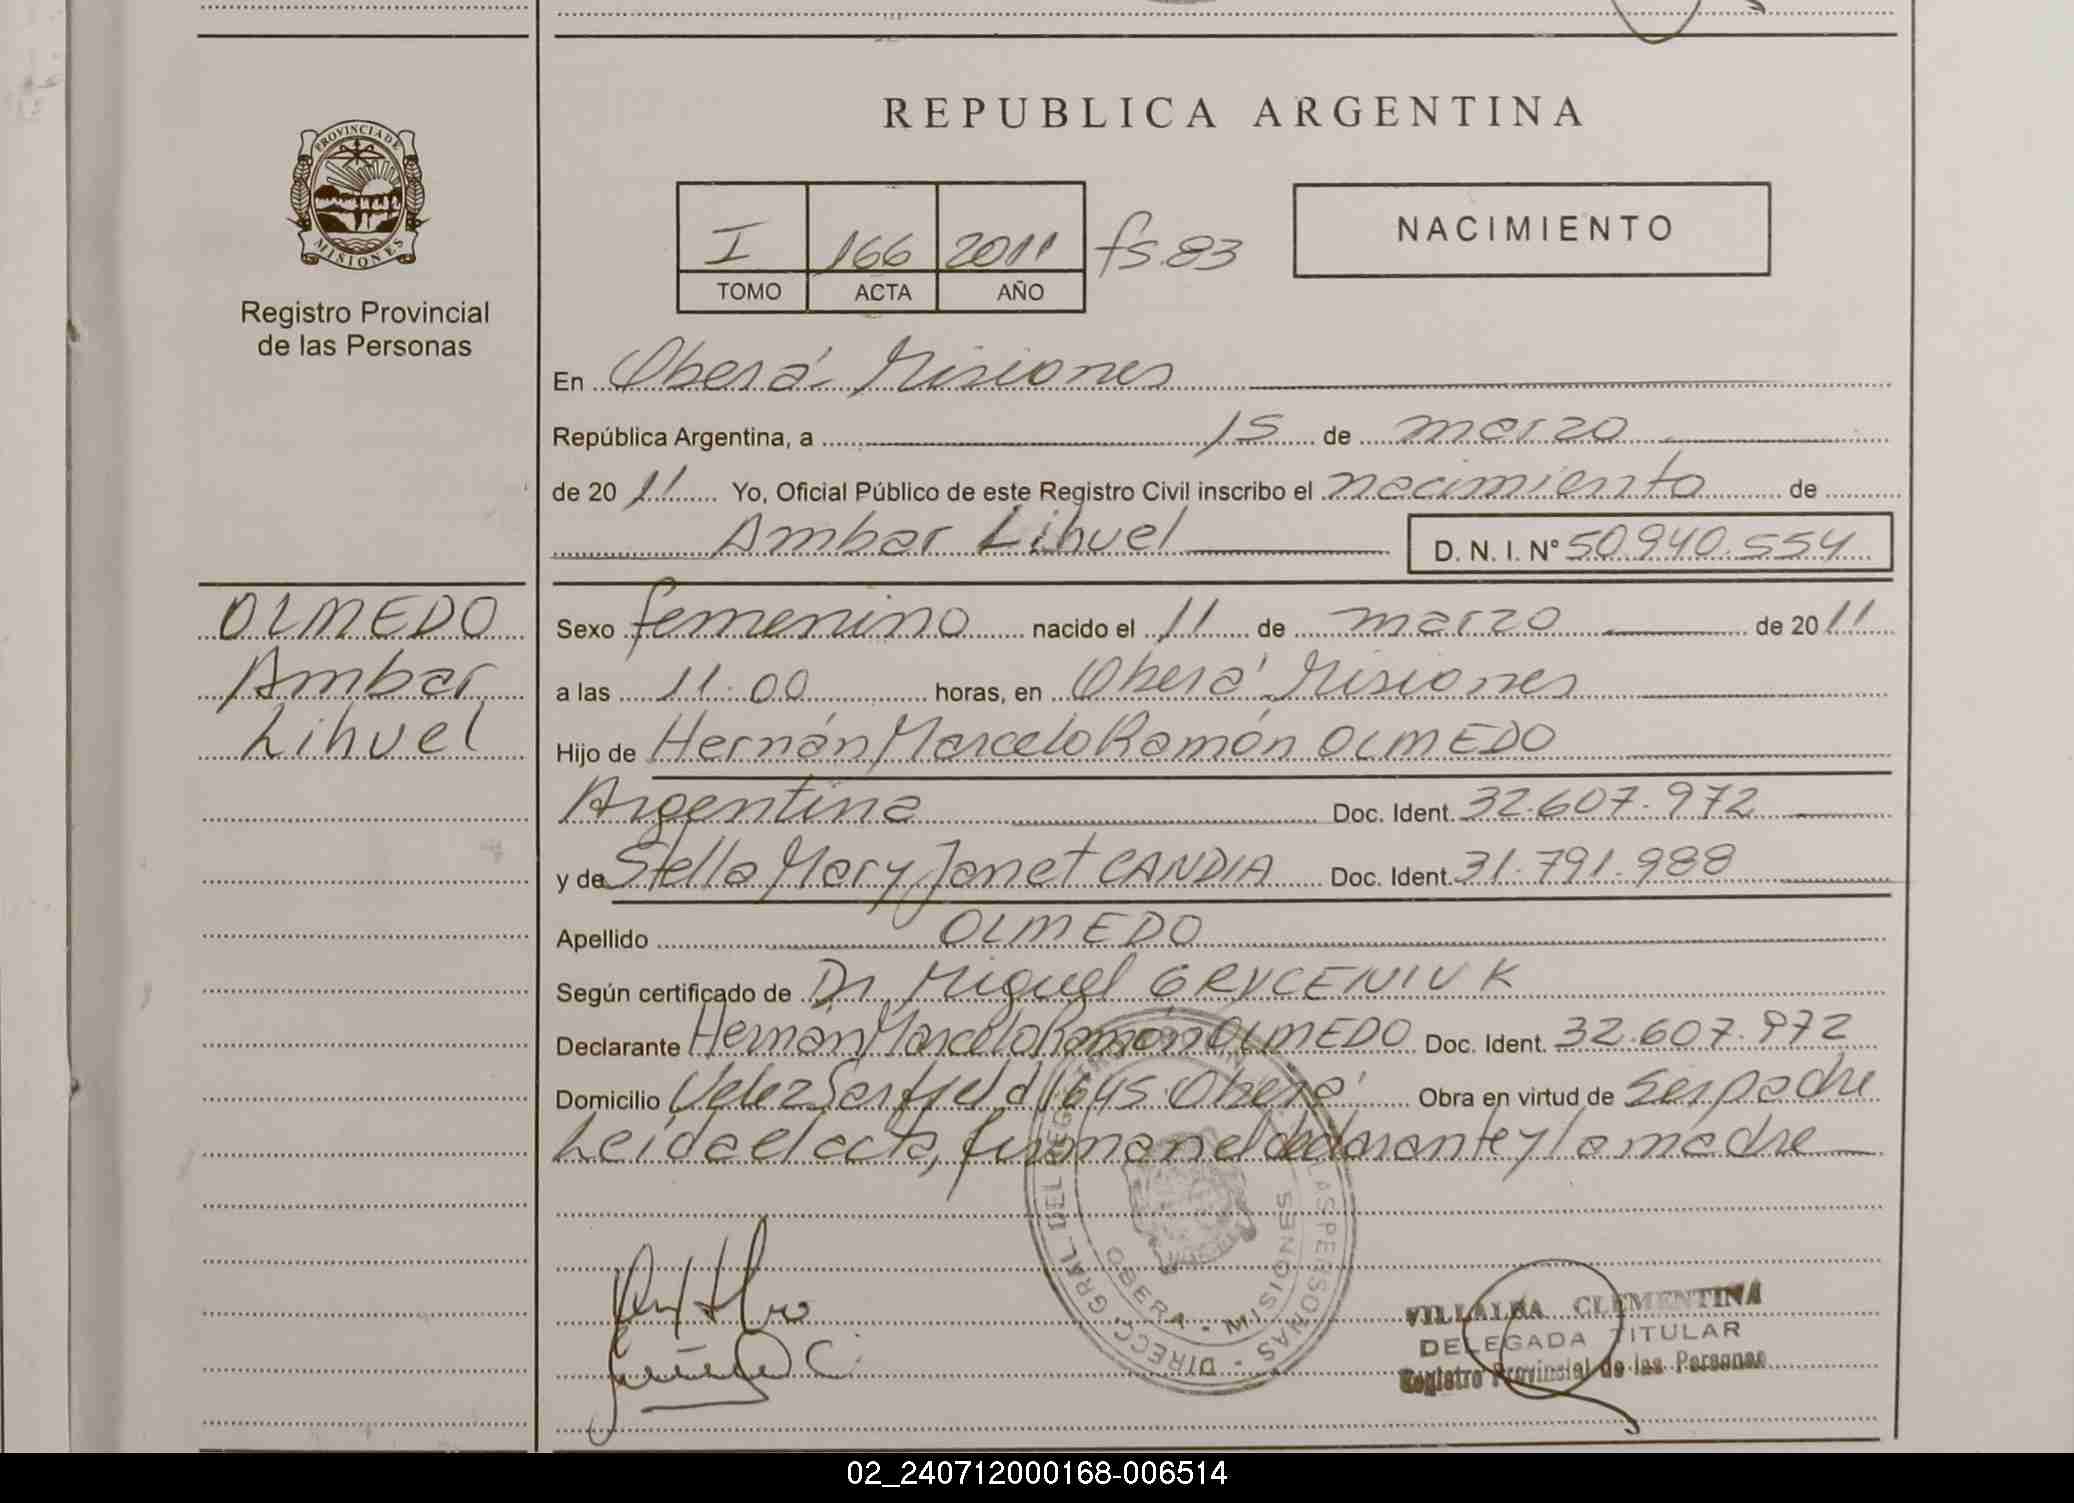 REPUBLICA ARGENTINA
PROVINCIA DE
MISIONES
Registro Provincial
de las Personas
I 166 2011 fs. 83
TOMO ACTA AÑO
NACIMIENTO
En Oberá Misiones
República Argentina, a 15 de marzo
de 2011 Yo, Oficial Público de este Registro Civil inscribo el nacimiento de
Ambar Lihuel D. N. I. N° 50.940.554
OLMEDO
Ambar
Lihuel
Sexo femenino nacido el 11 de marzo de 2011
a las 11.00 horas, en Oberá Misiones
Hijo de Hernán Marcelo Ramón OLMEDO
Argentina Doc. Ident. 32.607.972
y de Stella Mary Janet CANDIA Doc. Ident. 31.791.988
Apellido OLMEDO
Según certificado de Dr. Miguel GRYCENIUK
Declarante Hernán Marcelo Ramón OLMEDO Doc. Ident. 32.607.972
Domicilio Velez Sarfield 1645 Oberá Obra en virtud de ser padre
Leída el acta, firman el declarante y la madre
OBERA - MISIONES
VILLALBA CLEMENTINA
DELEGADA TITULAR
Registro Provincial de las Personas
02_240712000168-006514